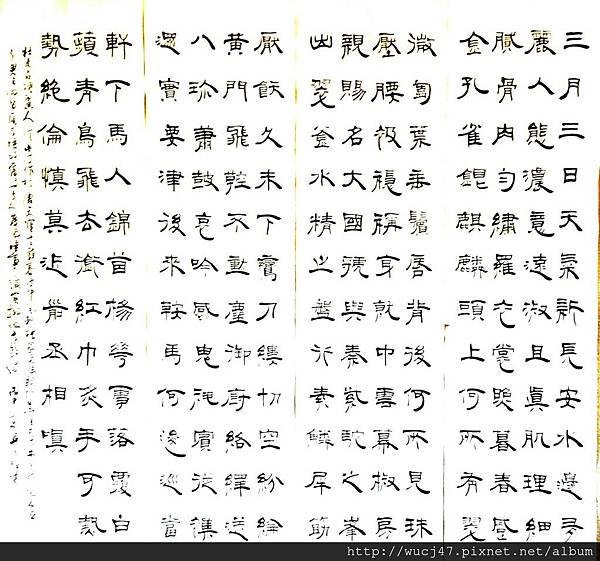 三月三日天氣新長安水邊多
麗人態濃意遠淑且真肌理細
膩骨肉勻繡羅衣裳照暮春蹙
金孔雀銀麒麟頭上何所有翠
微㔩葉垂鬢脣背後何所見珠
壓腰衱穩稱身就中雲幕椒房
親賜名大國虢與秦紫駝之峯
出翠釜水精之盤行素鱗犀筯
厭飫久未下鸞刀縷切空紛綸
黃門飛鞚不動塵御府絡繹送
八珍蕭鼓哀吟感鬼神賓從雜
遝實要津後來鞍馬何逡巡當
軒下馬人錦茵楊花雪落覆白
蘋青鳥飛去銜紅巾炙手可熱
勢絕倫慎莫近前丞相嗔
http://wucj47.pixnet.net/album